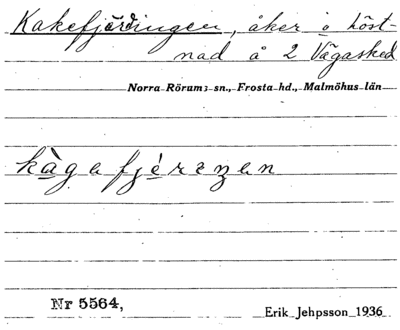 Kakefjärdingen, åker i höst-
nad å 2 Vägasked
Norra Rörums sn., Frosta hd., Malmöhus län
Nr 5564,
Erik Jehpsson 1936